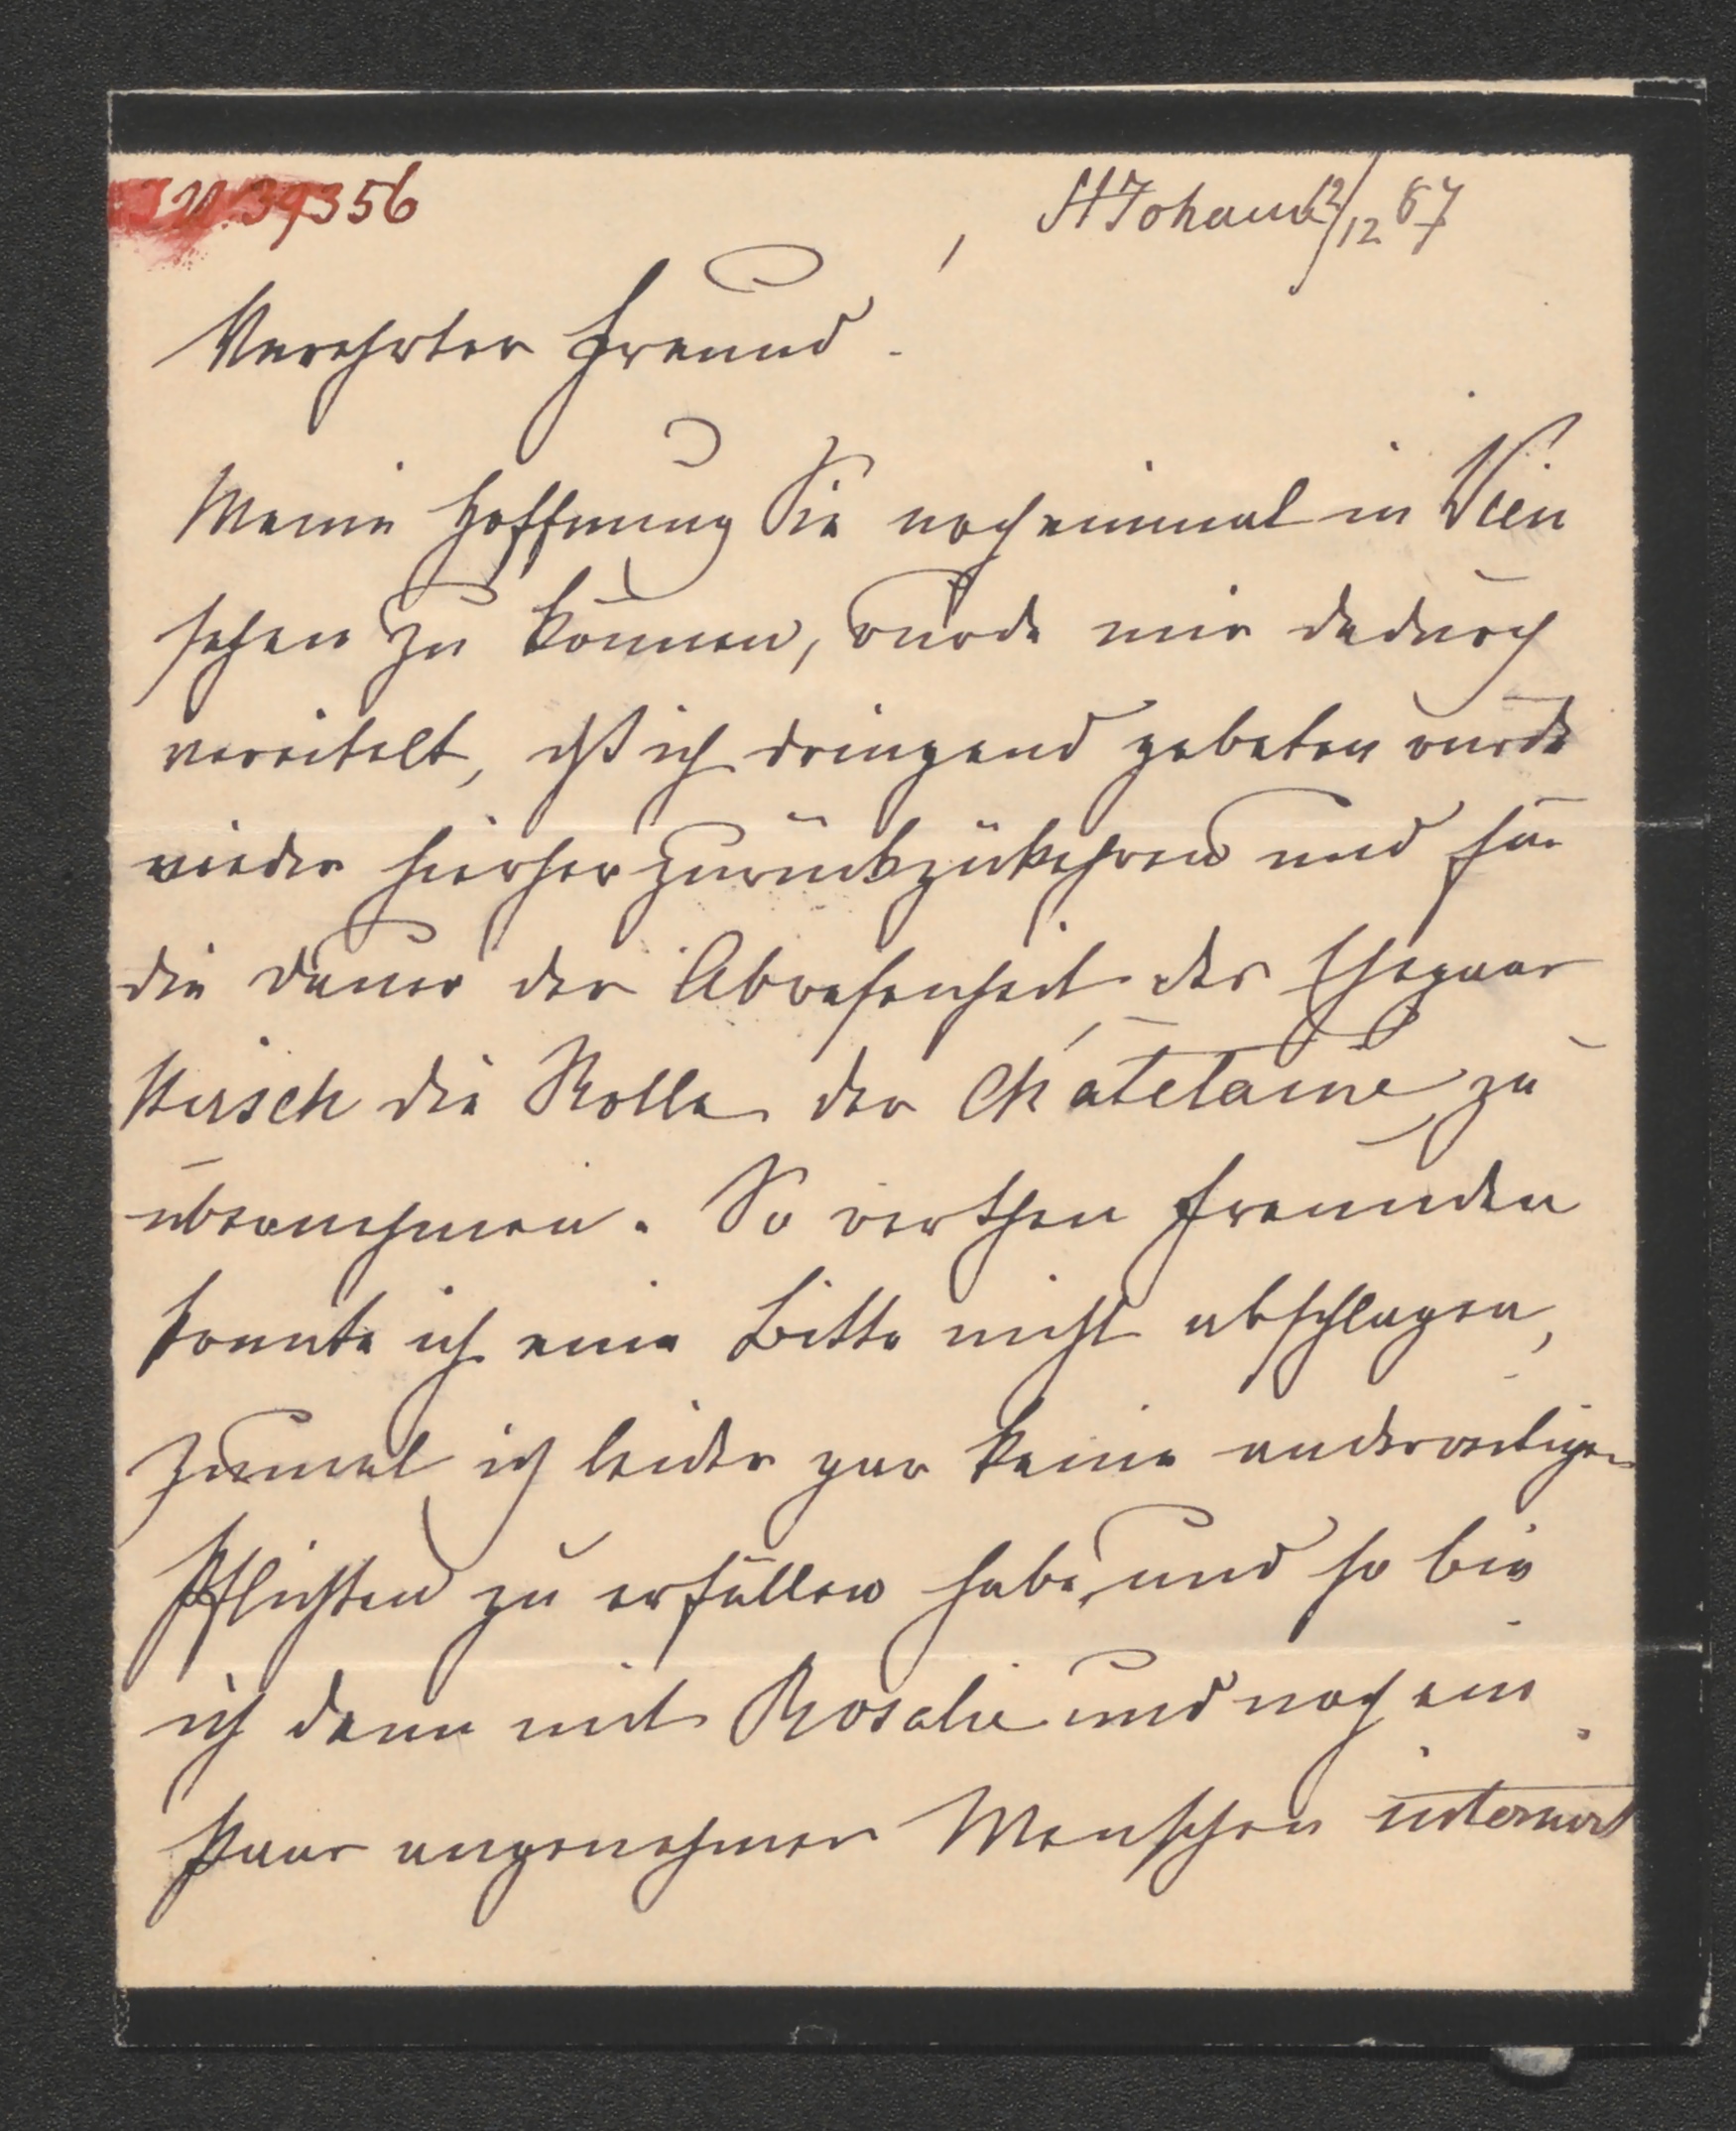 I.N. 39356
St Johann 12/12 87
Verehrter Freund.
Meine Hoffnung Sie noch einmal in Wien
sehen zu können, wurde mir dadurch
vereitelt, dß ich dringend gebeten wurde
wieder hierher zurückzukehren und für
die Dauer der Abwesenheit des Ehepaar
Hirsch die Rolle der Châtelaine zu
übernehmen. So werthen Freunden
konnte ich eine Bitte nicht abschlagen,
zumal ich leider gar keine anderweitigen
Pflichten zu erfüllen habe, und so bin
ich denn mit Rosalie und noch ein
Paar angenehmen Menschen internirt